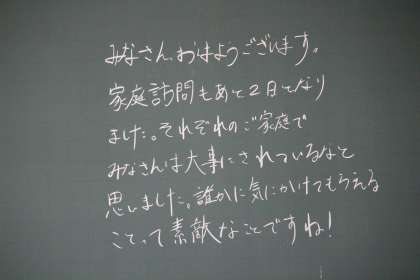 みなさん、おはようございます。
家庭訪問もあと2日となり
ました。それぞれのご家庭で
みなさんは大事にされているなと
思いました。誰かに気にかけてもらえる
ことって素敵なことですね!